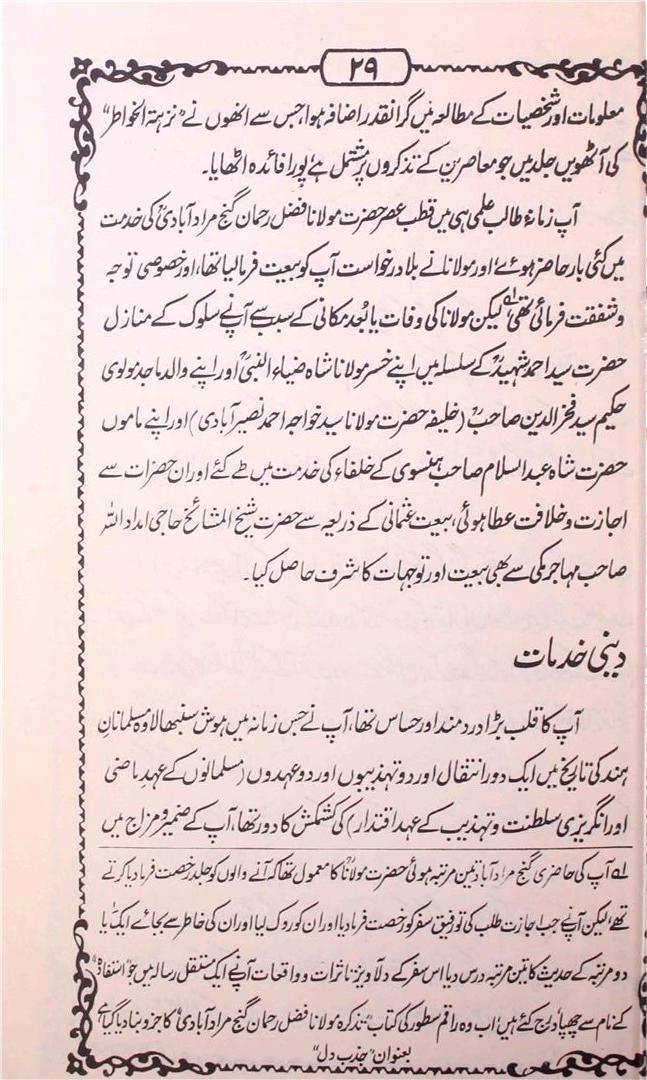 ۲۹
معلومات اور شخصیات کے مطالعہ میں گرانقدر اضافہ ہوا، جس سے انھوں نے "نزہتہ الخواطر"
کی آٹھویں جلد میں جو معاصرین کے تذکروں پر مشتمل ہے، پورا فائدہ اٹھایا۔
آپ زمانۂ طالب علمی ہی میں قطب عصر حضرت مولانا فضل رحمان گنج مراد آبادیؒ کی خدمت
میں کئی بار حاضر ہوئے، اور مولانا نے بلا درخواست آپ کو بیعت فرمالیا تھا، اور خصوصی توجہ
و شفقت فرمائی تھی،لہ لیکن مولانا کی وفات یا بُعد مکانی کے سبب سے آپنے سلوک کے منازل
حضرت سید احمد شہیدؒ کے سلسلہ میں اپنے خسر مولانا شاہ ضیاء النبیؒ اور اپنے والد ماجد مولوی
حکیم سید فخر الدین صاحبؒ (خلیفہ حضرت مولانا سید خواجہ احمد نصیر آبادی) اور اپنے ماموں
حضرت شاہ عبد السلام صاحب ہنسوی کے خلفاء کی خدمت میں طے کئے اور ان حضرات سے
اجازت و خلافت عطا ہوئی، بیعت عثمانی کے ذریعہ سے حضرت شیخ المشائخ حاجی امداد اللہ
صاحب مہاجر مکی سے بھی بیعت اور توجہات کا شرف حاصل کیا۔
دینی خدمات
آپ کا قلب بڑا درد مند اور حساس تھا، آپ نے جس زمانہ میں ہوش سنبھالا وہ مسلمانانِ
ہند کی تاریخ میں ایک دور انتقال اور دو تہذیبوں اور دو عہدوں (مسلمانوں کے عہدِ ماضی
اور انگریزی سلطنت و تہذیب کے عہد اقتدار) کی کشمکش کا دور تھا، آپ کے ضمیر و مزاج میں
لہ آپ کی حاضری گنج مراد آباد تین مرتبہ ہوئی حضرت مولاناؒ کا معمول تھا کہ آنے والوں کو جلد رخصت فرما دیا کرتے
تھے، لیکن آپنے جب اجازت طلب کی تو رفیق سفر کو رخصت فرما دیا اور ان کو روک لیا اور ان کی خاطر سے بجائے ایک یا
دو مرتبہ کے حدیث کا تین مرتبہ درس دیا اس سفر کے دلآویز تاثرات و واقعات آپنے ایک مستقل رسالہ میں جو "استفادہ"
کے نام سے چھپا، درج کئے ہیں، اب وہ راقم سطور کی کتاب "تذکرہ مولانا فضل رحمان گنج مراد آبادیؒ" کا جزو بنا دیا گیا ہے
بعنوان "جذب دل"